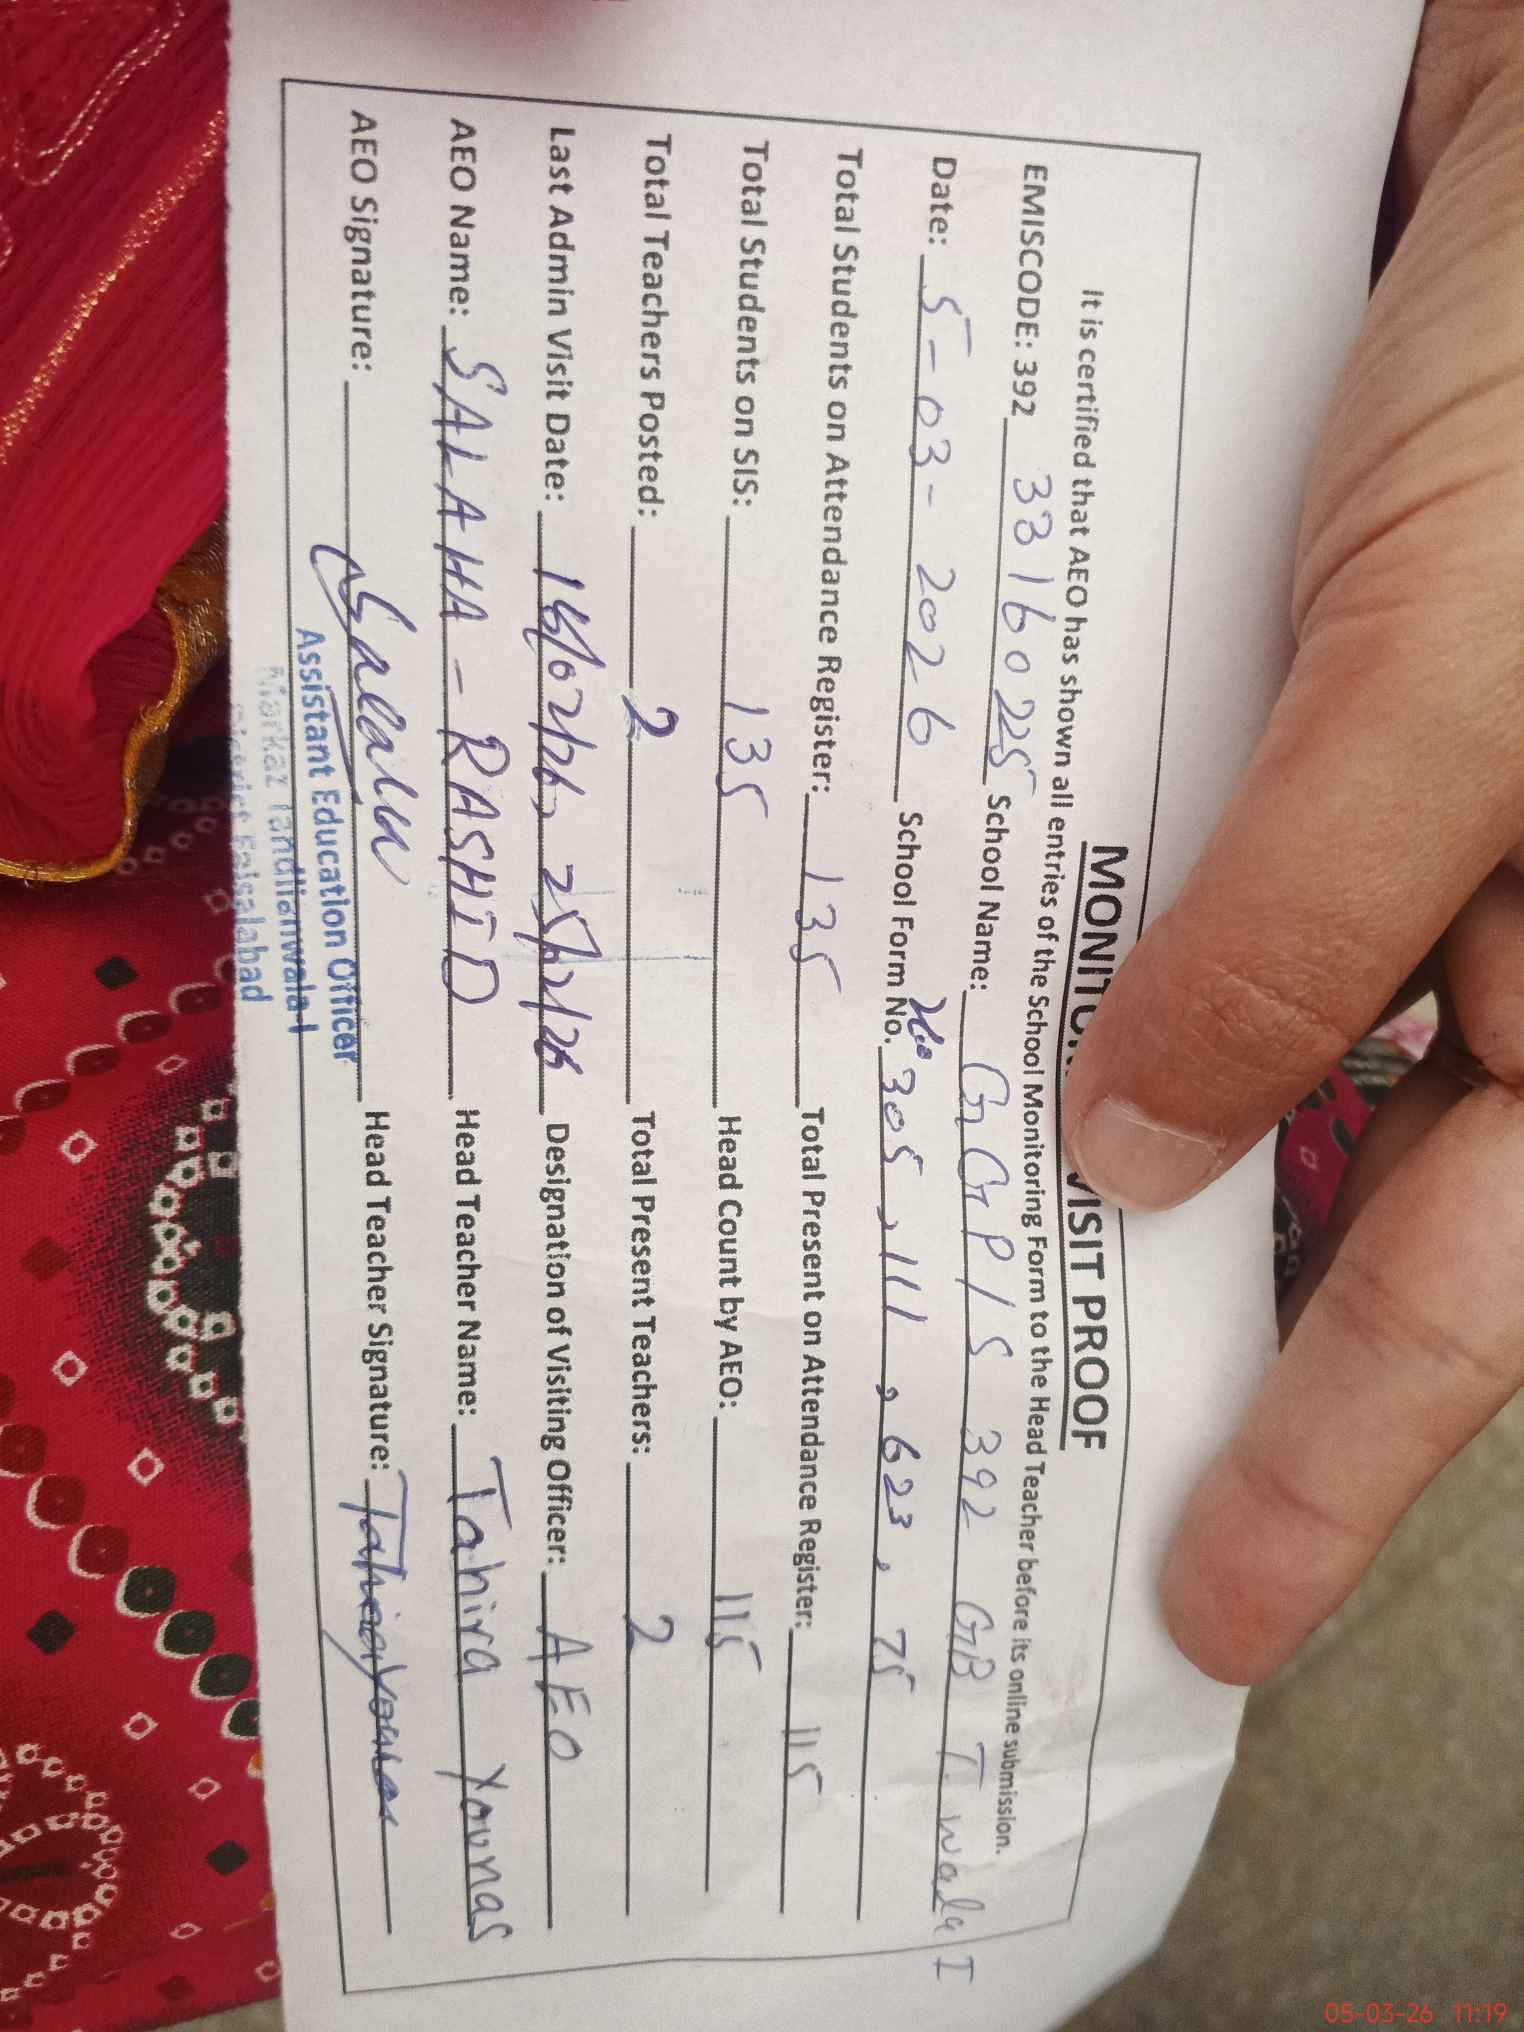 MONITOR VISIT PROOF
It is certified that AEO has shown all entries of the School Monitoring Form to the Head Teacher before its online submission.
EMISCODE: 392 33160225 School Name: GGP/S 392 GB T. wala I
Date: 5-03-2026 School Form No. 305, 111, 623, 75
Total Students on Attendance Register: 135 Total Present on Attendance Register: 115
Total Students on SIS: 135 Head Count by AEO: 115
Total Teachers Posted: 2 Total Present Teachers: 2
Last Admin Visit Date: 25/02/26 Designation of Visiting Officer: AEO
AEO Name: SALAHA - RASHID Head Teacher Name: Tahira Younas
AEO Signature: Head Teacher Signature: Tahira Younas
Assistant Education Officer
Markaz Tandlianwala-I
District Faisalabad
05-03-26 11:19